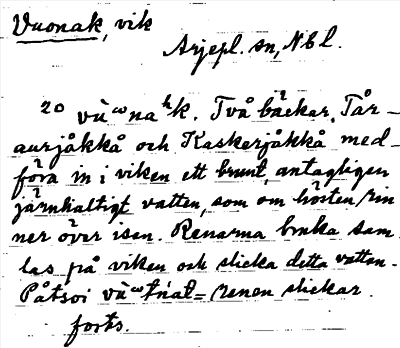 Vuonak, vik
Arjepl. sn, Nbl.
20 vùωnaʰk. Två bäckar, Tår-
aurjåkkå och Kaskerjåkkå med-
föra in i viken ett brunt, antagligen
järnhaltigt vatten, som om hösten rin
ner över isen. Renarna bruka sam-
las på viken och slicka detta vatten.
Påtsoi = renen slickar.
forts.